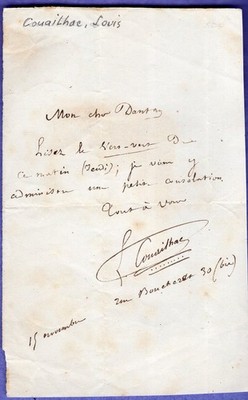 Couailhac, Louis
Mon cher Dantan
Lisez le Vert-vert de
ce matin (Jeudi); je vous y
administre une petite consolation
Tout à vous
L Couailhac
rue Boucherat 30 (bis)
15 novembre